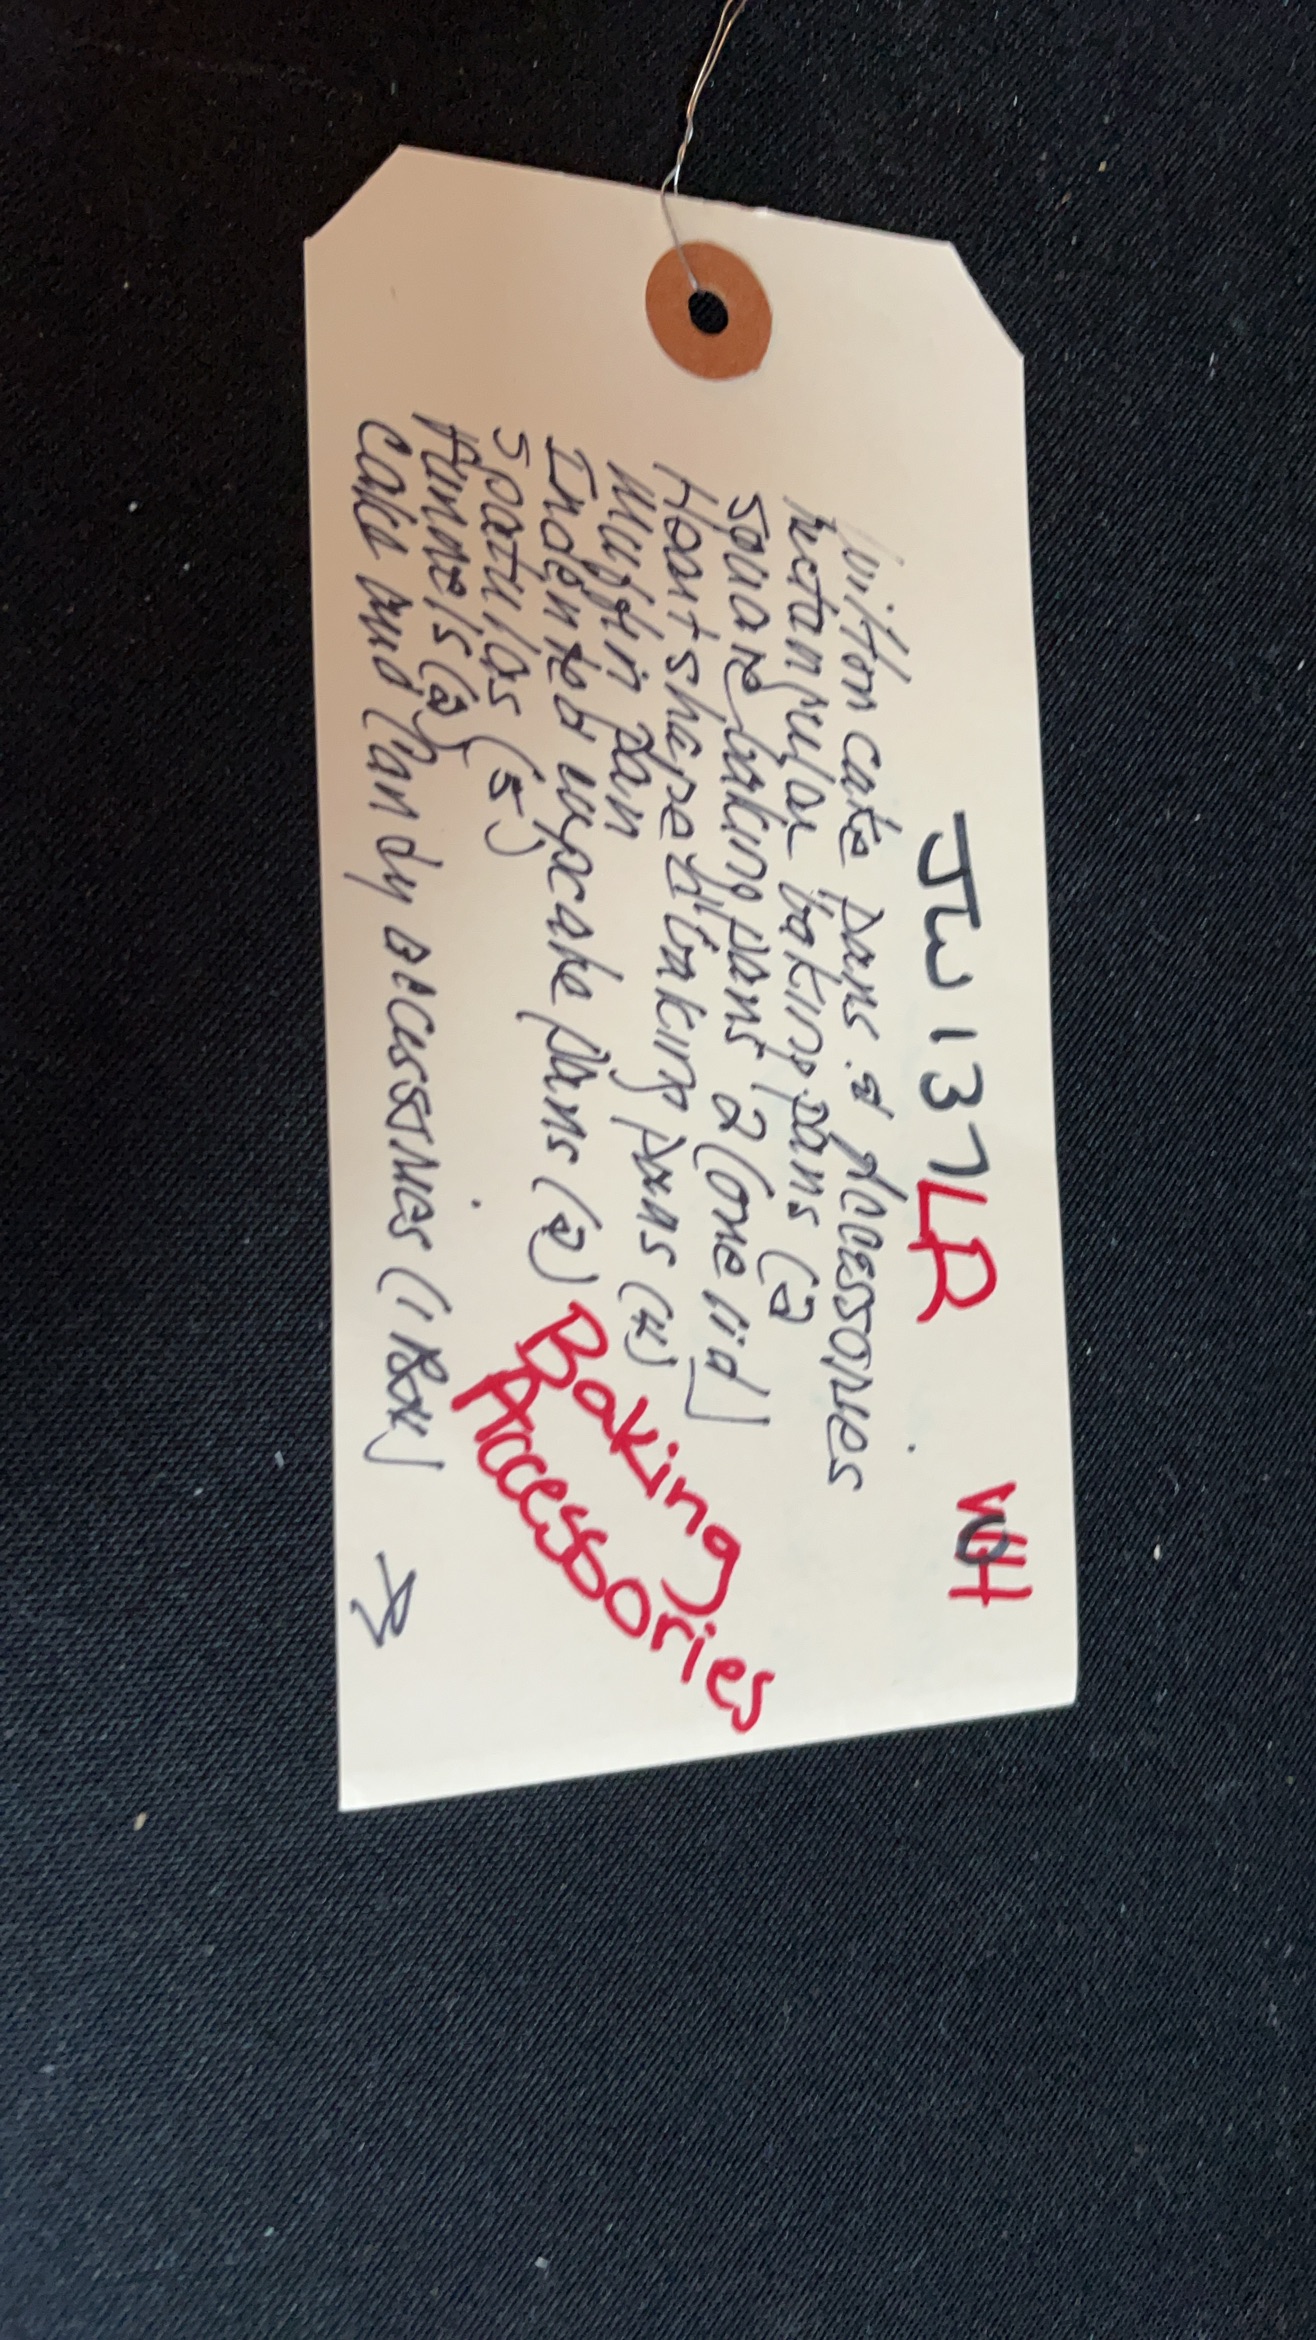 JW 137 LR WH
Wilton cake pans & Accessories
Rectangular baking pans (2
Square baking pans 2 (one lid)
Heart shaped baking pans (4)
Muffin pan
Indented cupcake pans (2)
Spatulas (5)
Funnels (2)
Cake and Candy accessories (1 Box)
Baking
Accessories